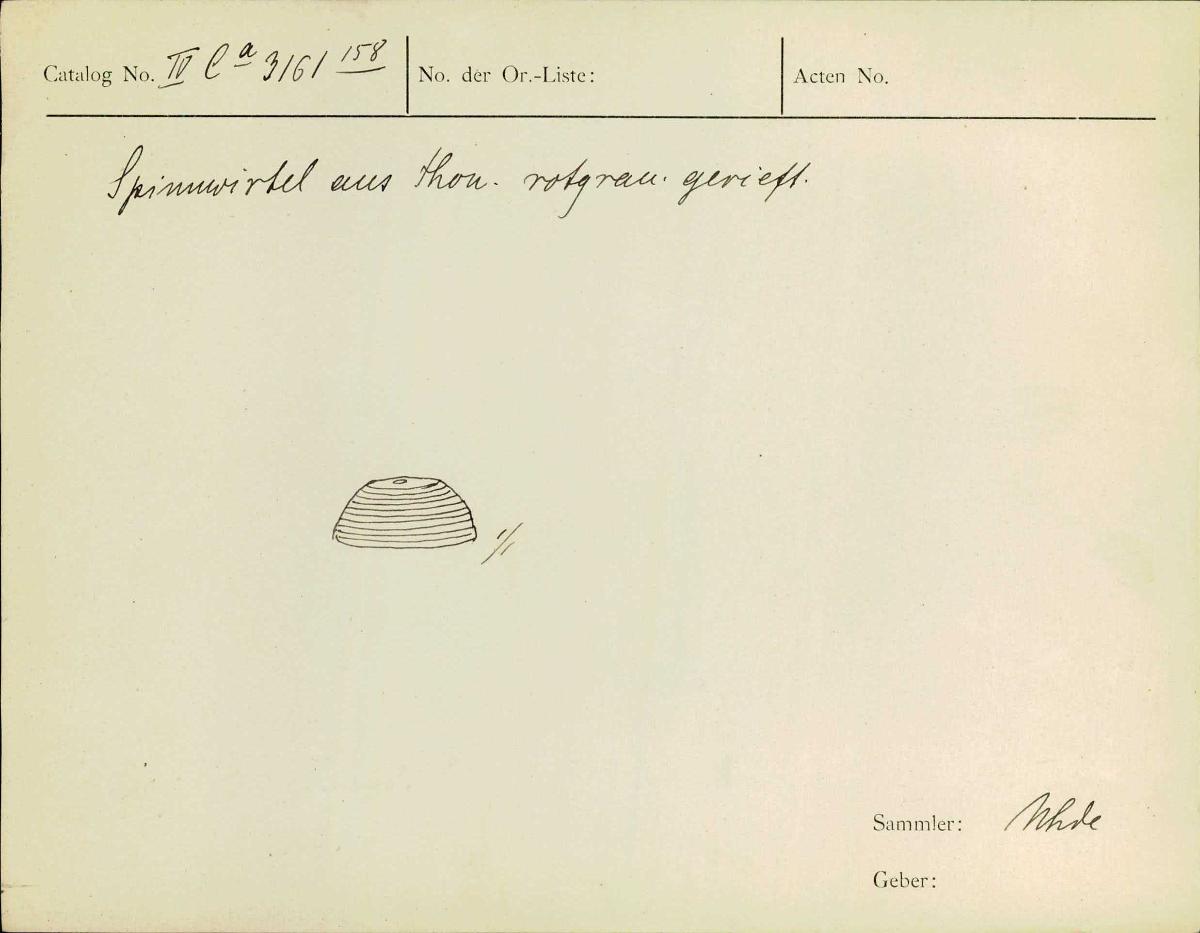 Catalog No. IV Ca 3161 158
No. der Or.-Liste:
Acten No.
Spinnwirtel aus Thon. rotgrau. gerieft.
1/1
Sammler: Uhde
Geber: